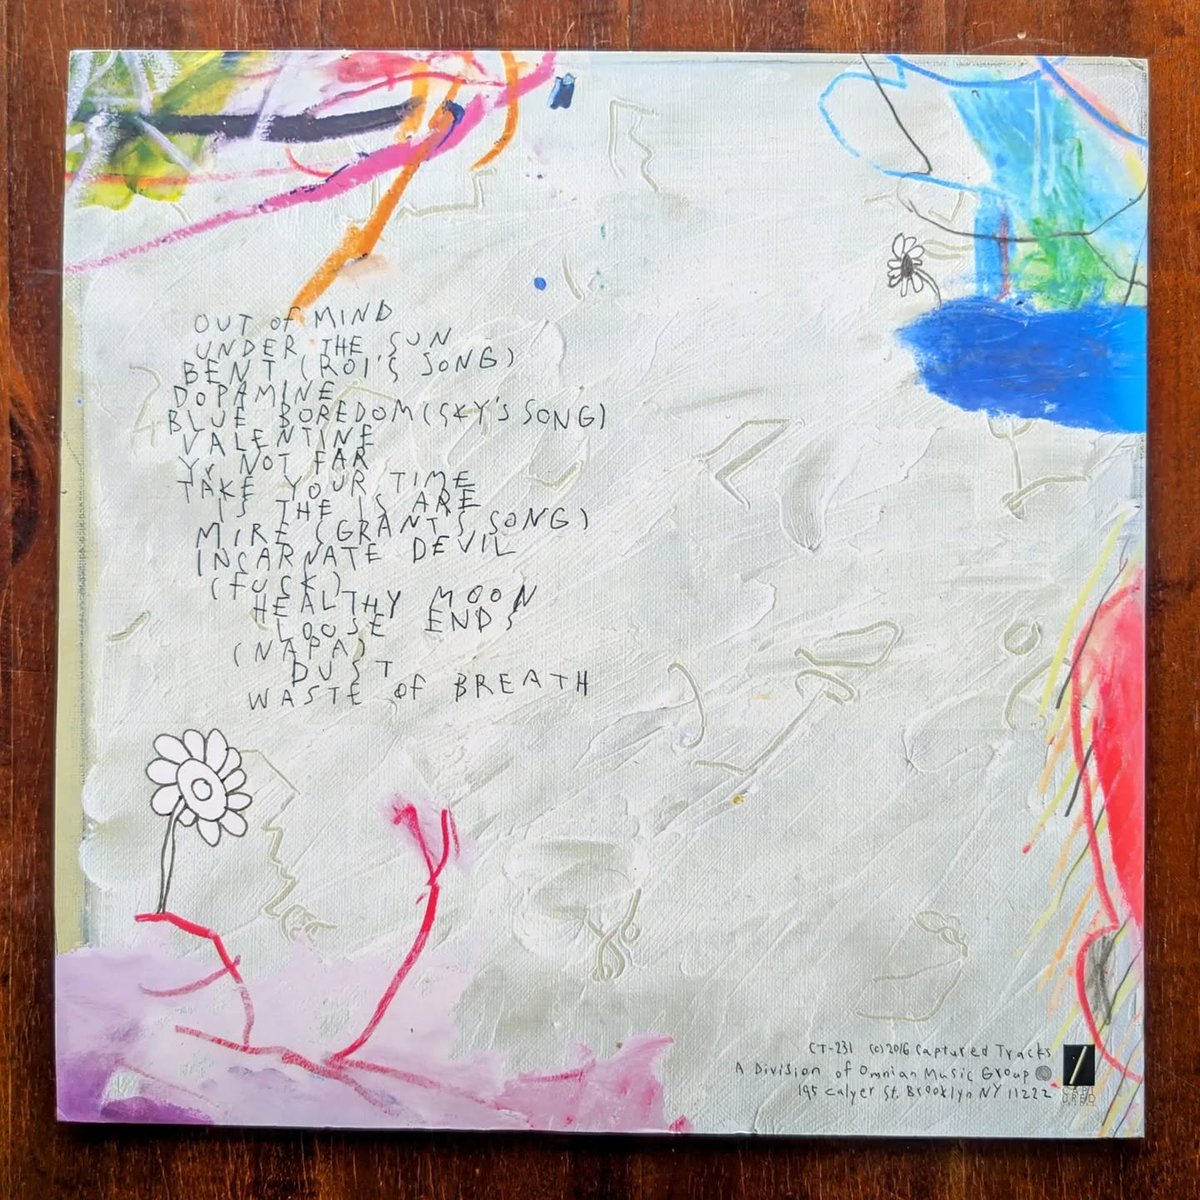 OUT of MIND
UNDER THE SUN
BENT (ROI'S SONG)
DOPAMINE
BLUE BOREDOM (SKY'S SONG)
VALENTINE
Yr NOT FAR
TAKE YOUR TIME
IS THE IS ARE
MIRE (GRANT'S SONG)
INCARNATE DEVIL
(fUCK)
HEALTHY MOON
LOOSE ENDS
(NAPA)
DUST
WASTE Of BREATH
CT-231 (c) 2016 Captured Tracks
A Division of Omnian Music Group
195 Calyer St. Brooklyn NY 11222
CAPT
URED